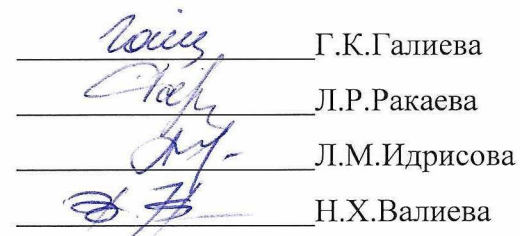 Г.К.Галиева
Л.Р.Ракаева
Л.М.Идрисова
Н.Х.Валиева